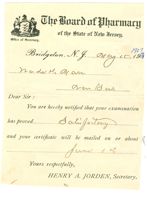 The Board of Pharmacy
of the State of New Jersey.
Office of Secretary.
Bridgeton, N. J. May 15 1907
Dear Sir:
You are hereby notified that your examination
has proved Satisfactory
and your certificate will be mailed on or about
June 1st
Yours respectfully,
HENRY A. JORDEN, Secretary.